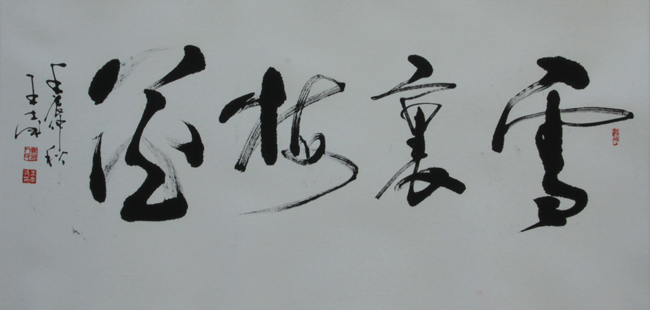 雪裏梅花
壬辰仲秋